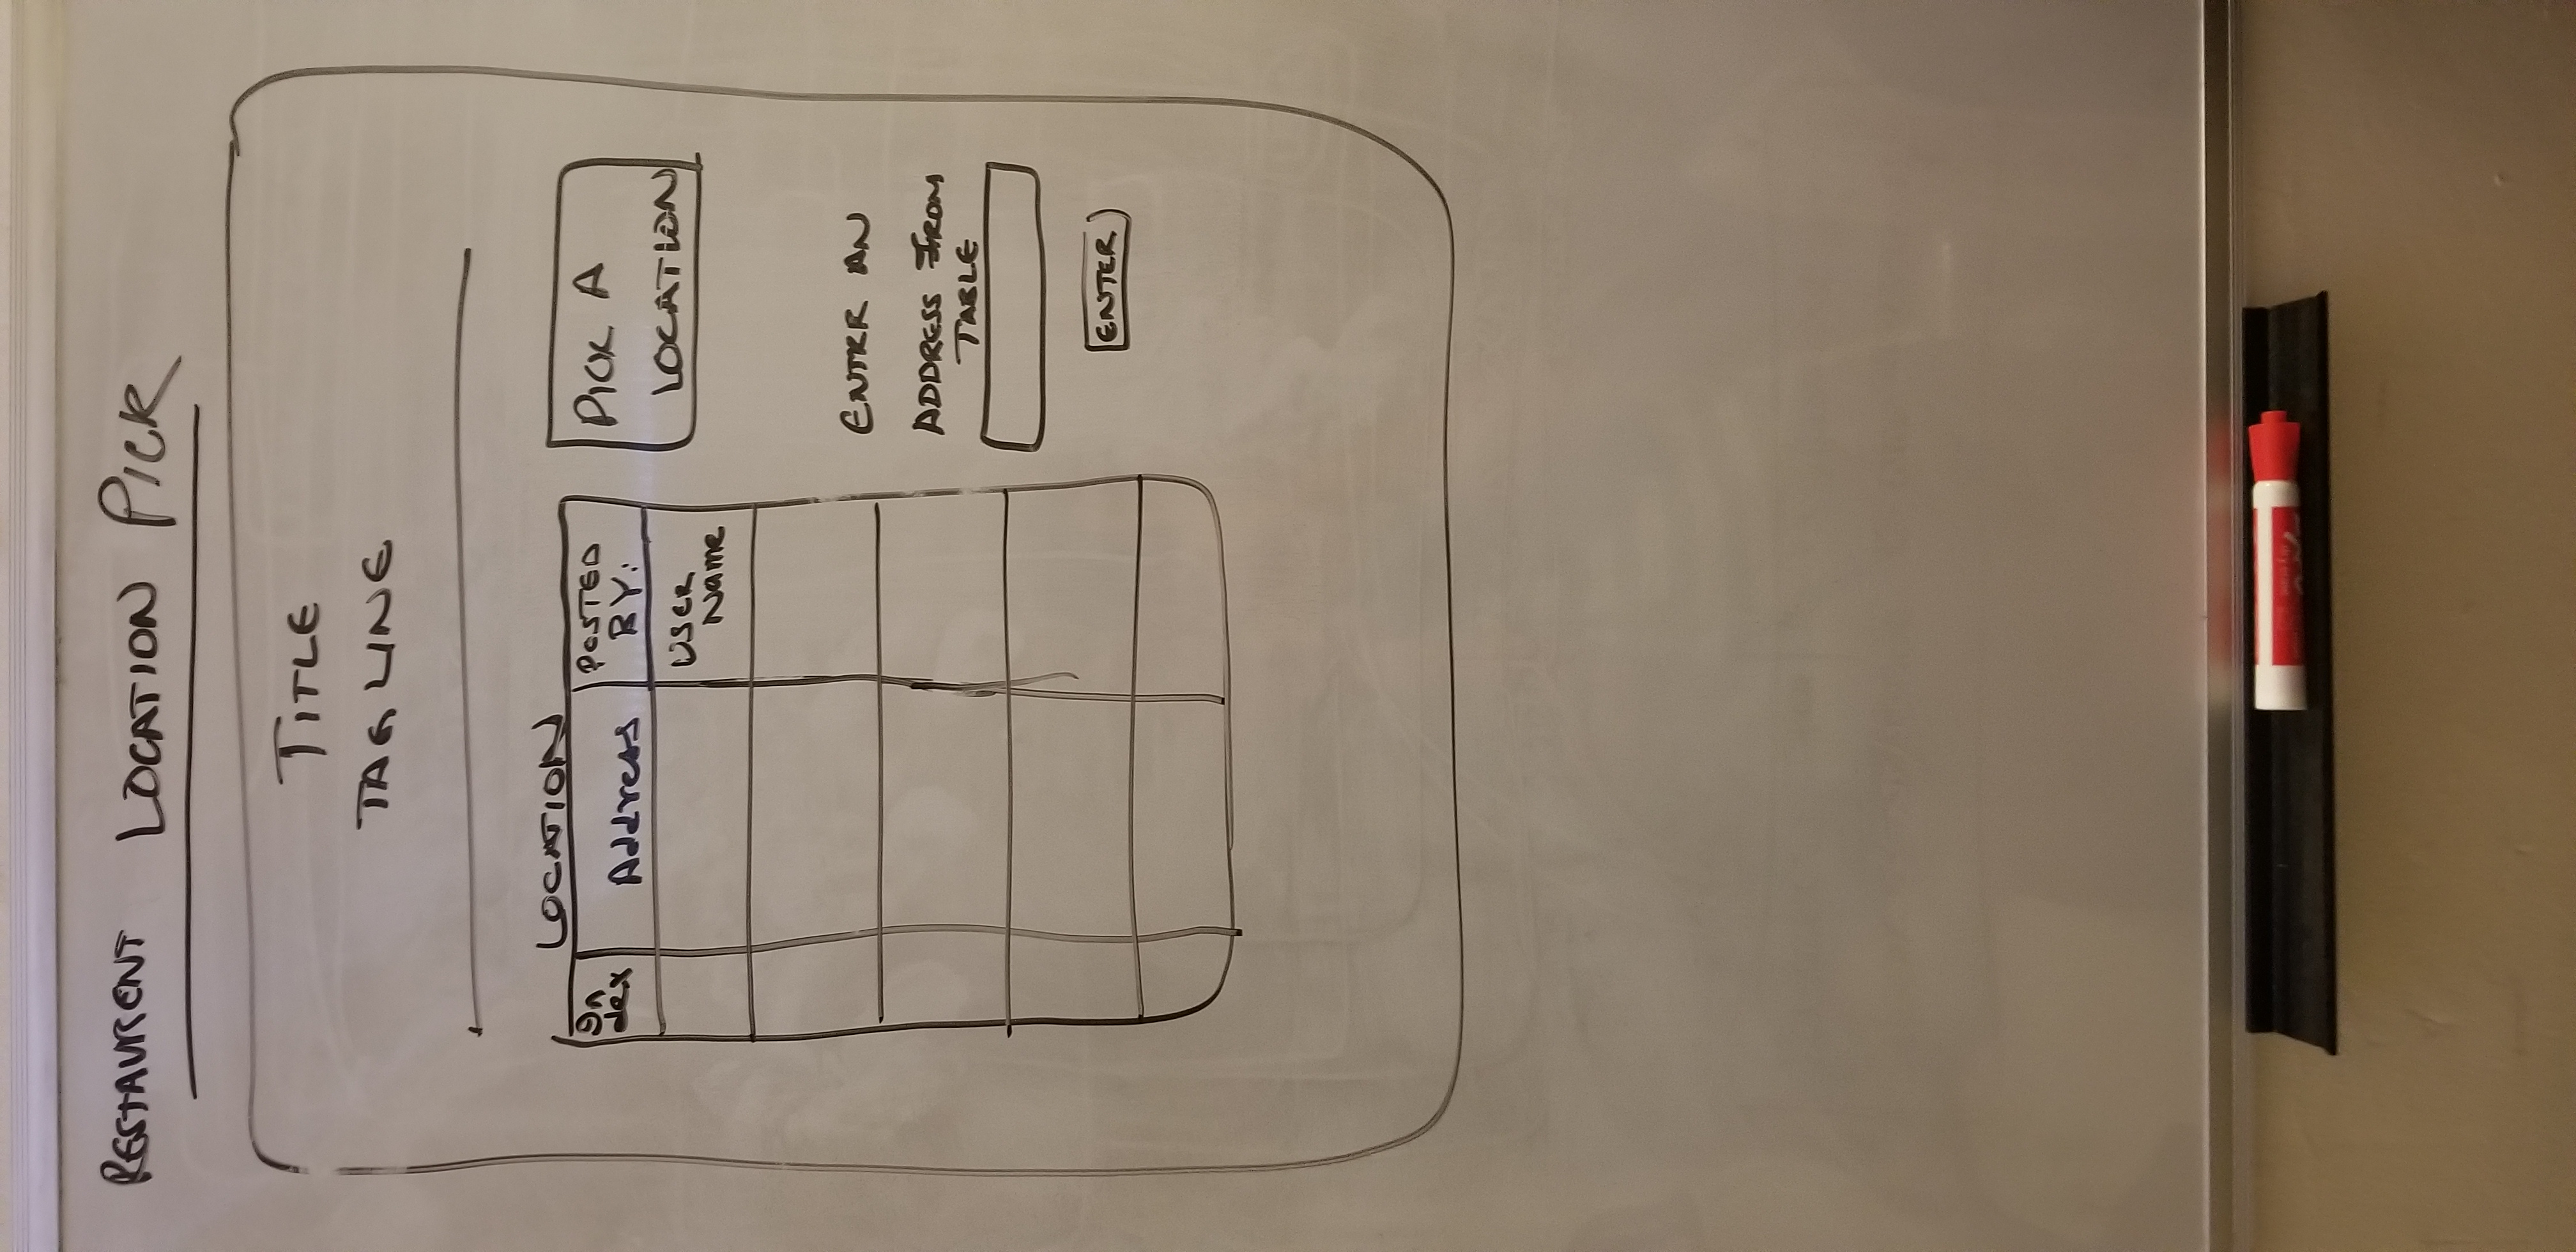 RESTAURENT LOCATION PICK
TITLE
TAG LINE
LOCATION
In
dex
Address
POSTED
BY:
USER
Name
PICK A
LOCATION
ENTER AN
ADDRESS FROM
TABLE
ENTER